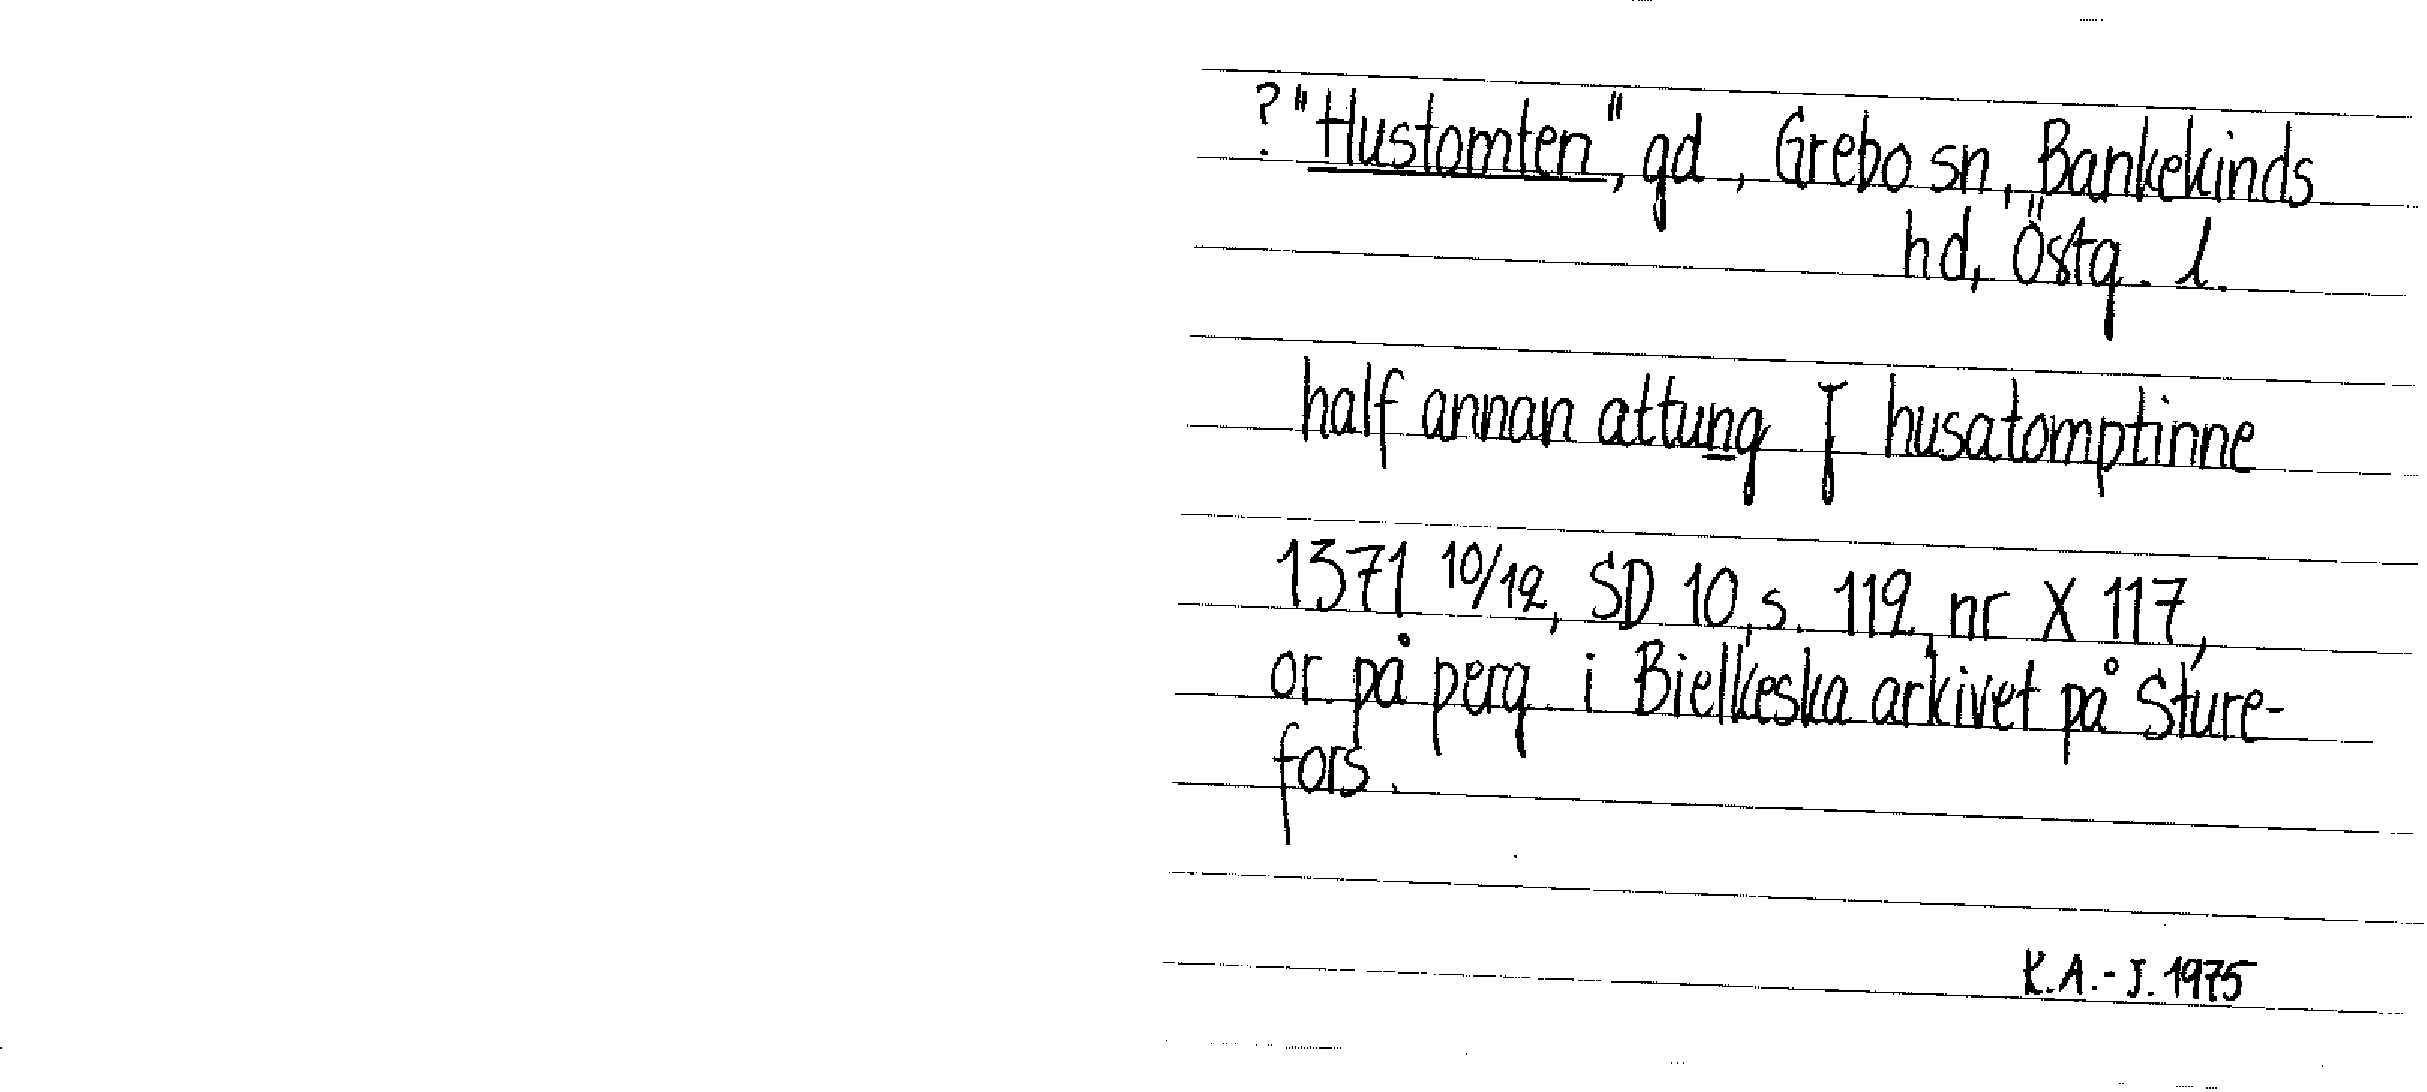 ? "Hustomten", gd, Grebo sn, Bankekinds
hd, Östg. l.
half annan attung J husatomptinne
1371 10/12, SD 10, s. 112, nr X 117,
or. på perg. i Bielkeska arkivet på Sture-
fors.
K.A.-J. 1975